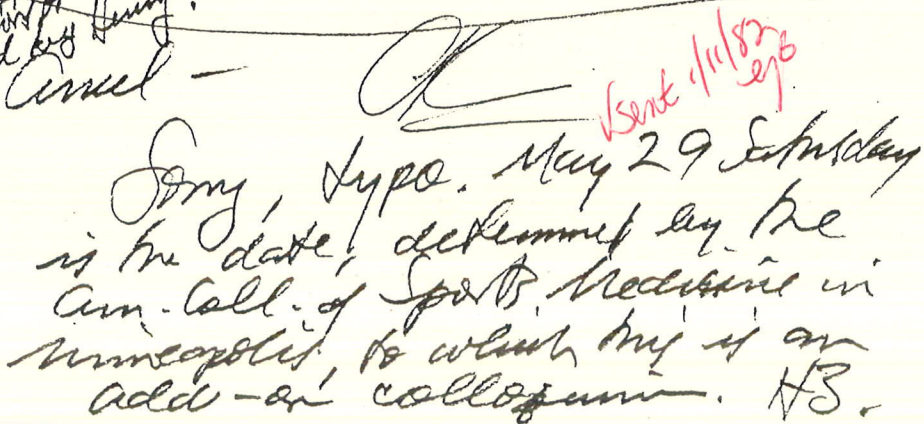 by Henry.
Ancel -
OK
sent 1/11/82
Sorry, typo. May 29 Saturday
is the date, determined by the
Am. Coll. of Sports Medicine in
Minneapolis, to which this is an
add-on colloquium. HB.